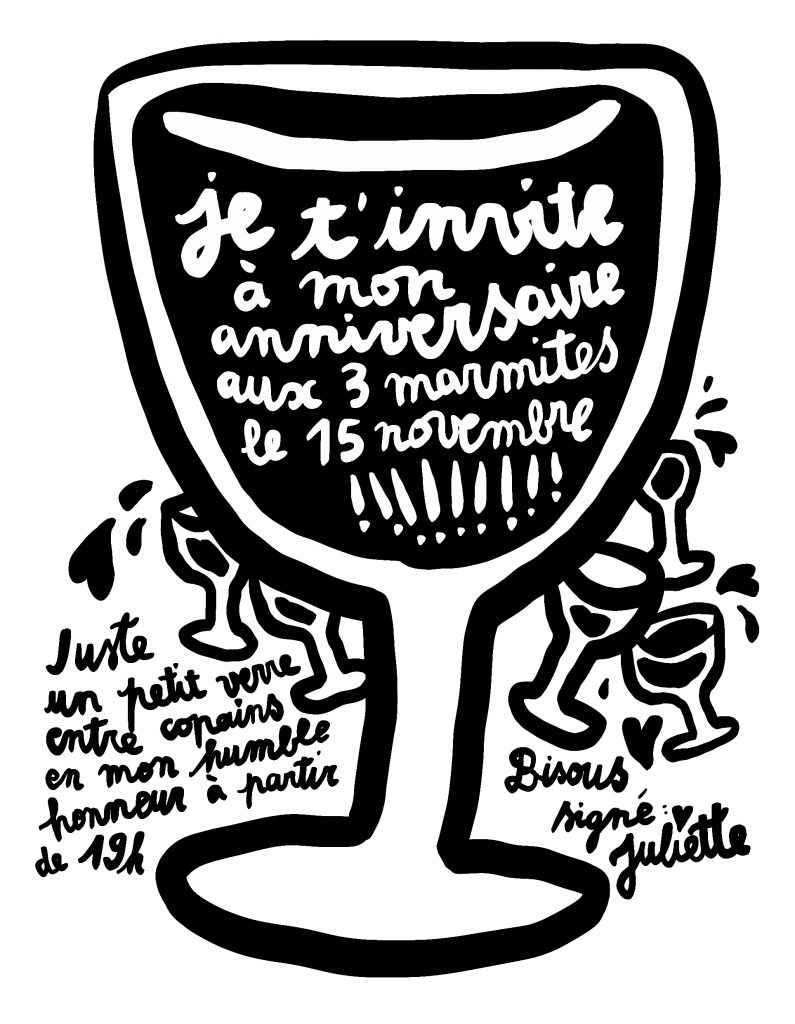 je t'invite
à mon
anniversaire
aux 3 marmites
le 15 novembre
!!!!!!!!!
Juste
un petit verre
entre copains
en mon humble
honneur à partir
de 19h
Bisous
signé :
Juliette